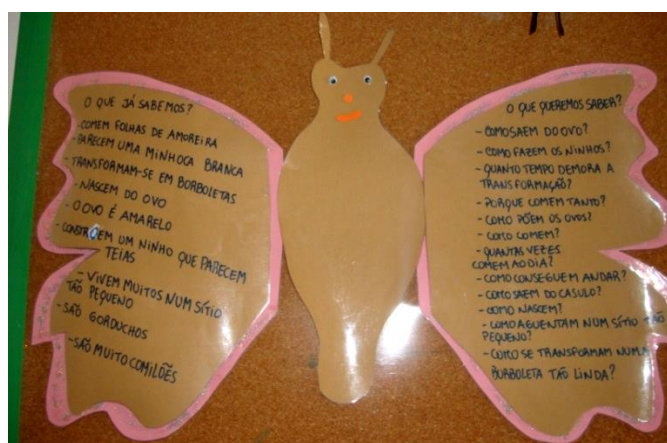 O QUE JÁ SABEMOS?
-COMEM FOLHAS DE AMOREIRA
-PARECEM UMA MINHOCA BRANCA
-TRANSFORMAM-SE EM BORBOLETAS
-NASCEM DO OVO
-O OVO É AMARELO
-CONSTROEM UM NINHO QUE PARECEM
TEIAS
-VIVEM MUITOS NUM SÍTIO
TÃO PEQUENO
-SÃO GORDUCHOS
-SÃO MUITO COMILÕES
O QUE QUEREMOS SABER?
-COMO SAEM DO OVO?
-COMO FAZEM OS NINHOS?
-QUANTO TEMPO DEMORA A
TRANSFORMAÇÃO?
-PORQUE COMEM TANTO?
-COMO PÕEM OS OVOS?
-COMO COMEM?
-QUANTAS VEZES
COMEM AO DIA?
-COMO CONSEGUEM ANDAR?
-COMO SAEM DO CASULO?
-COMO NASCEM?
-COMO AGUENTAM NUM SÍTIO TÃO
PEQUENO?
-COMO SE TRANSFORMAM NUMA
BORBOLETA TÃO LINDA?